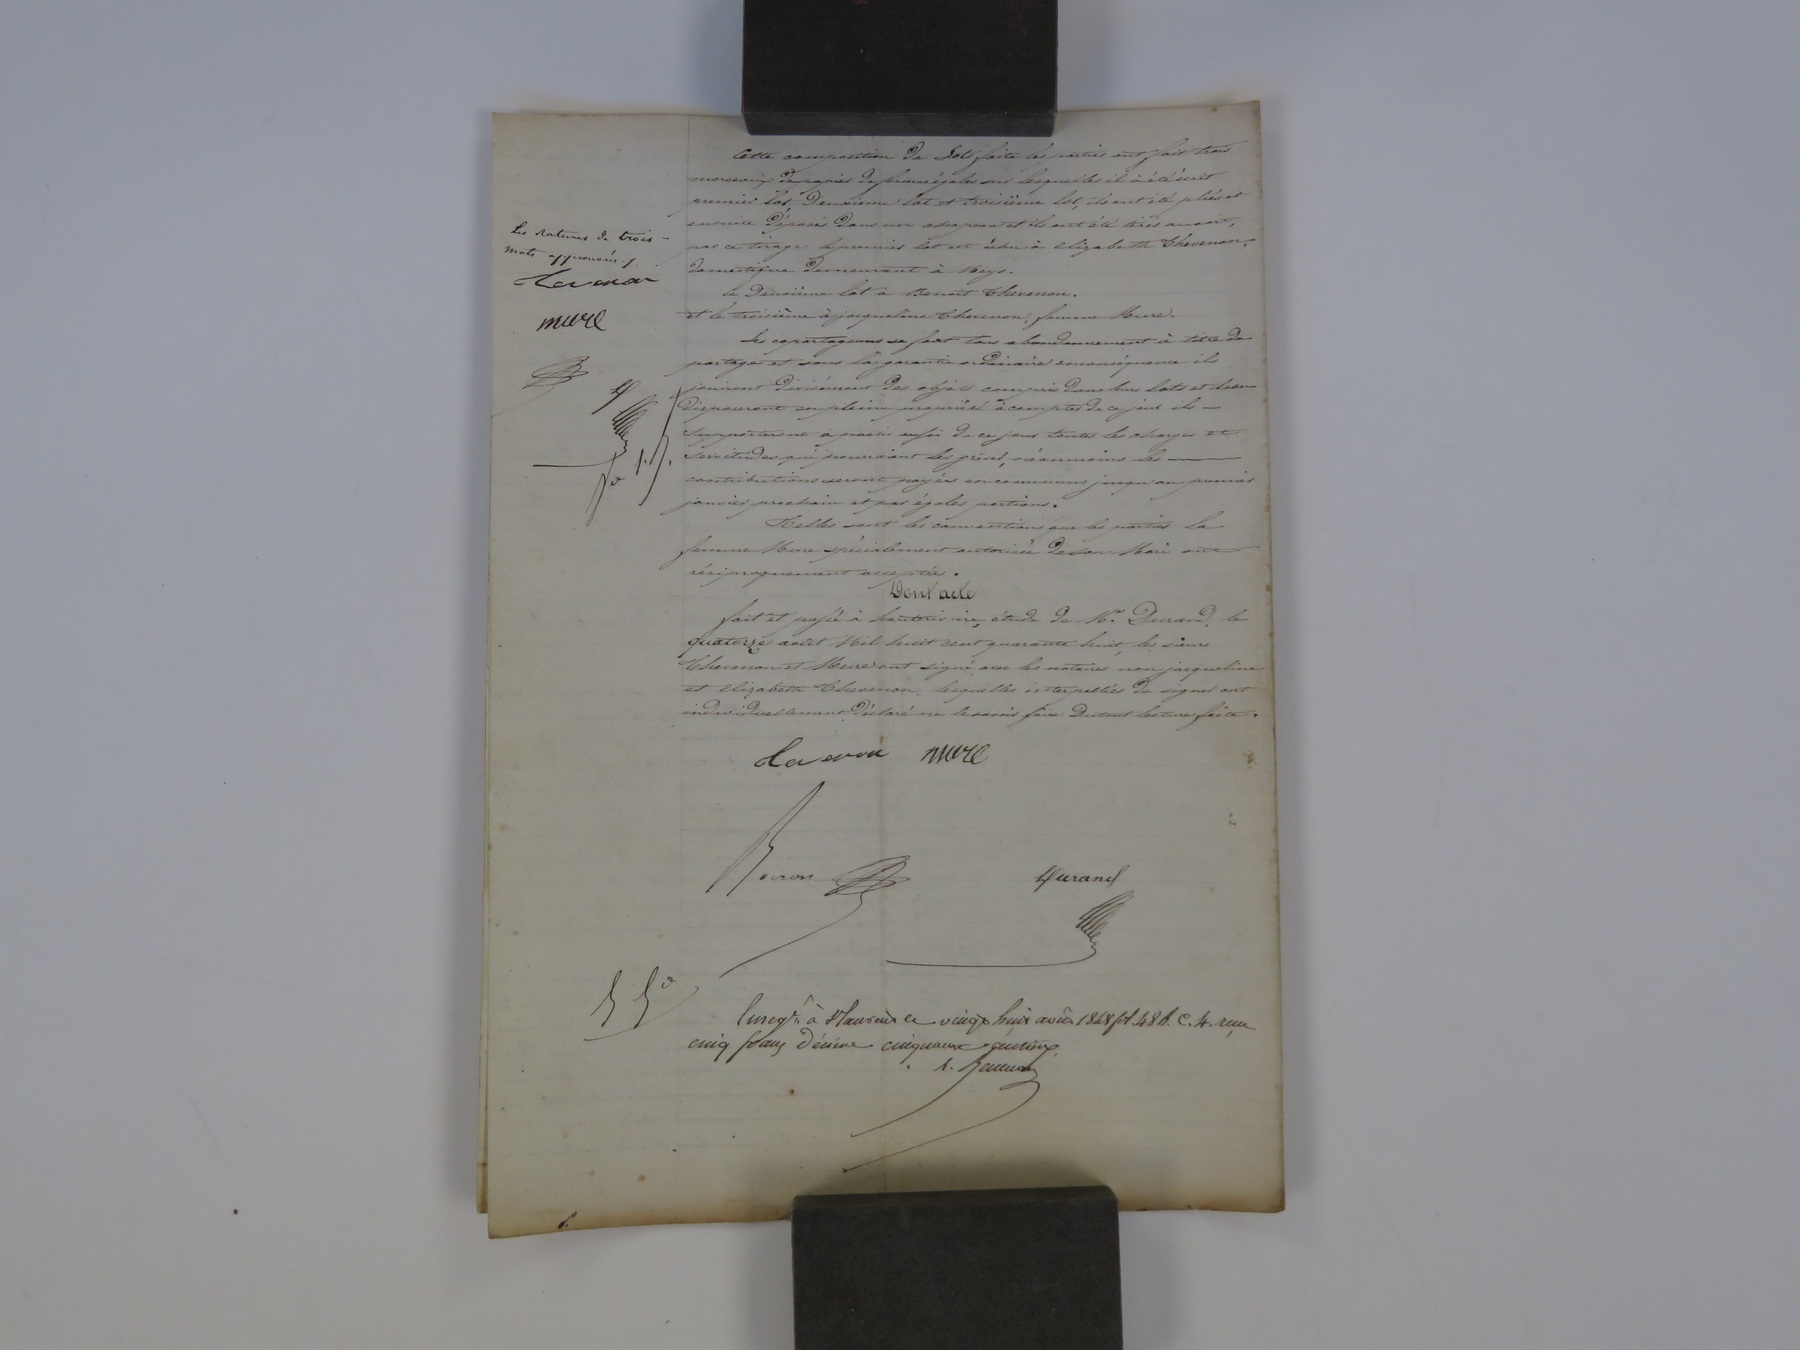 Cette composition de Lots faite les parties ont fait trois
morceaux de papier de formes égales sur lesquelles il a été écrit
premier lot Deuxième lot et troisième lot, ils ont été pliés et
ensuite déposés dans un chapeau et ils ont été tirés au sort,
par ce tirage le premier lot est échu à elizabeth Chevenon,
domestique demeurant à Meys.
Le Deuxième lot à Benoit Chevenon.
et le troisième à jacqueline Chevenon, femme Mure.
Les copartageans se font tous abandonnement à titre de
partage et sous la garantie ordinaire en conséquence ils
jouiront divisément des objets compris dans leurs lots et
disposeront en pleine propriété à compter de ce jour ils
supporteront à partir aussi de ce jour toutes les charges et
servitudes qui pourraient les gréver, néanmoins les
contributions seront payées en commun jusqu'au premier
janvier prochain et par égales portions.
Telles sont les conventions que les parties la
femme Mure spécialement autorisée de son Mari ont
réciproquement acceptées.
Dont acte
fait et passé à étude de Me. Durand, le
quatorze août Mil huit cent quarante huit, les sieurs
Chevenon et Mure ont signé avec les notaires non jacqueline
et elizabeth Chevenon, lesquelles interpellées de signer ont
individuellement déclaré ne le savoir faire Du tout lecture faite.
Les ratures de trois
mots approuvés
mure
mure
Durand
Enregé. à St Laurent ce vingt huit août 1848 fol 48 R. C. 4. reçu
cinq francs décime cinquante centimes